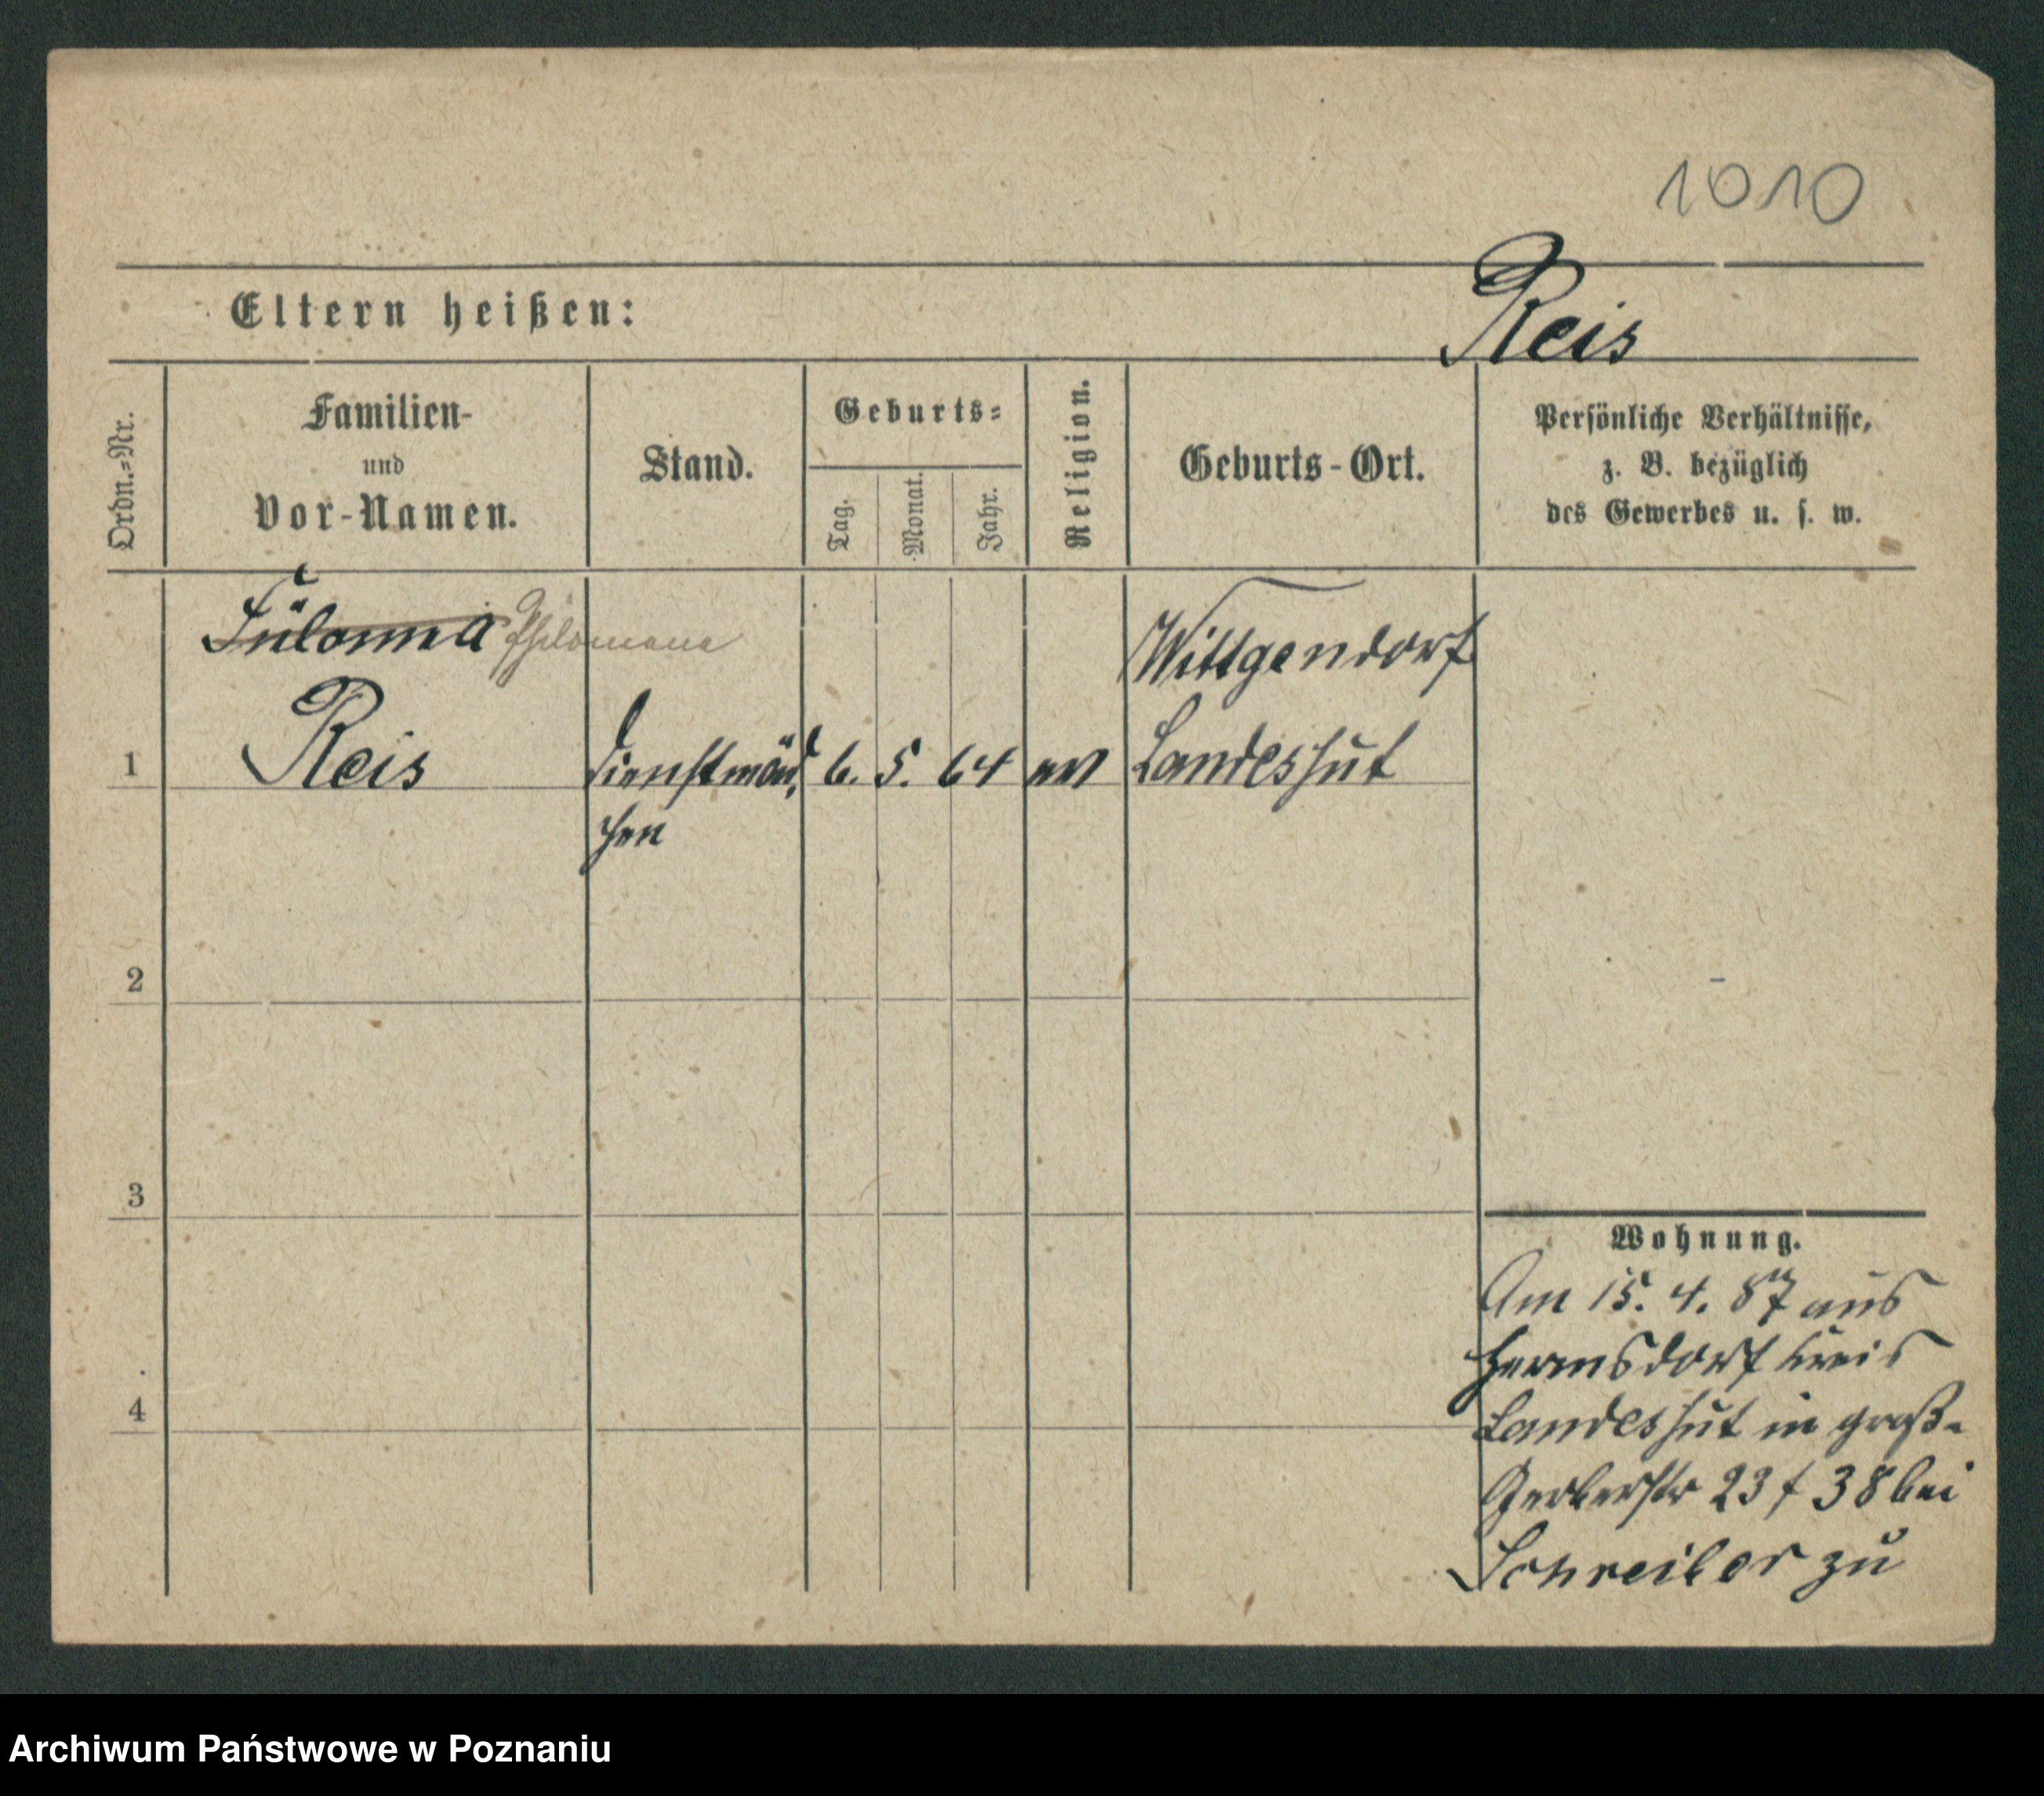 1010
Eltern heißen:
Reis
Ordn.=Nr.
Familien-
und
Vor-Namen.
Stand.
Geburts=
Tag.
Monat.
Jahr.
Religion.
Geburts-Ort.
Persönliche Verhältnisse,
z. B. bezüglich
des Gewerbes u. s. w.
Philomena
Wittgendorf
1 Reis Dienstmäd, 6. 5. 64 ev Landeshut
chen
2
3
4
Wohnung.
Am 15. 4. 87 aus
Hermsdorf Kreis
Landeshut in groß-
Gerberstr 23 f 38 bei
Schreiber zu
Archiwum Państwowe w Poznaniu